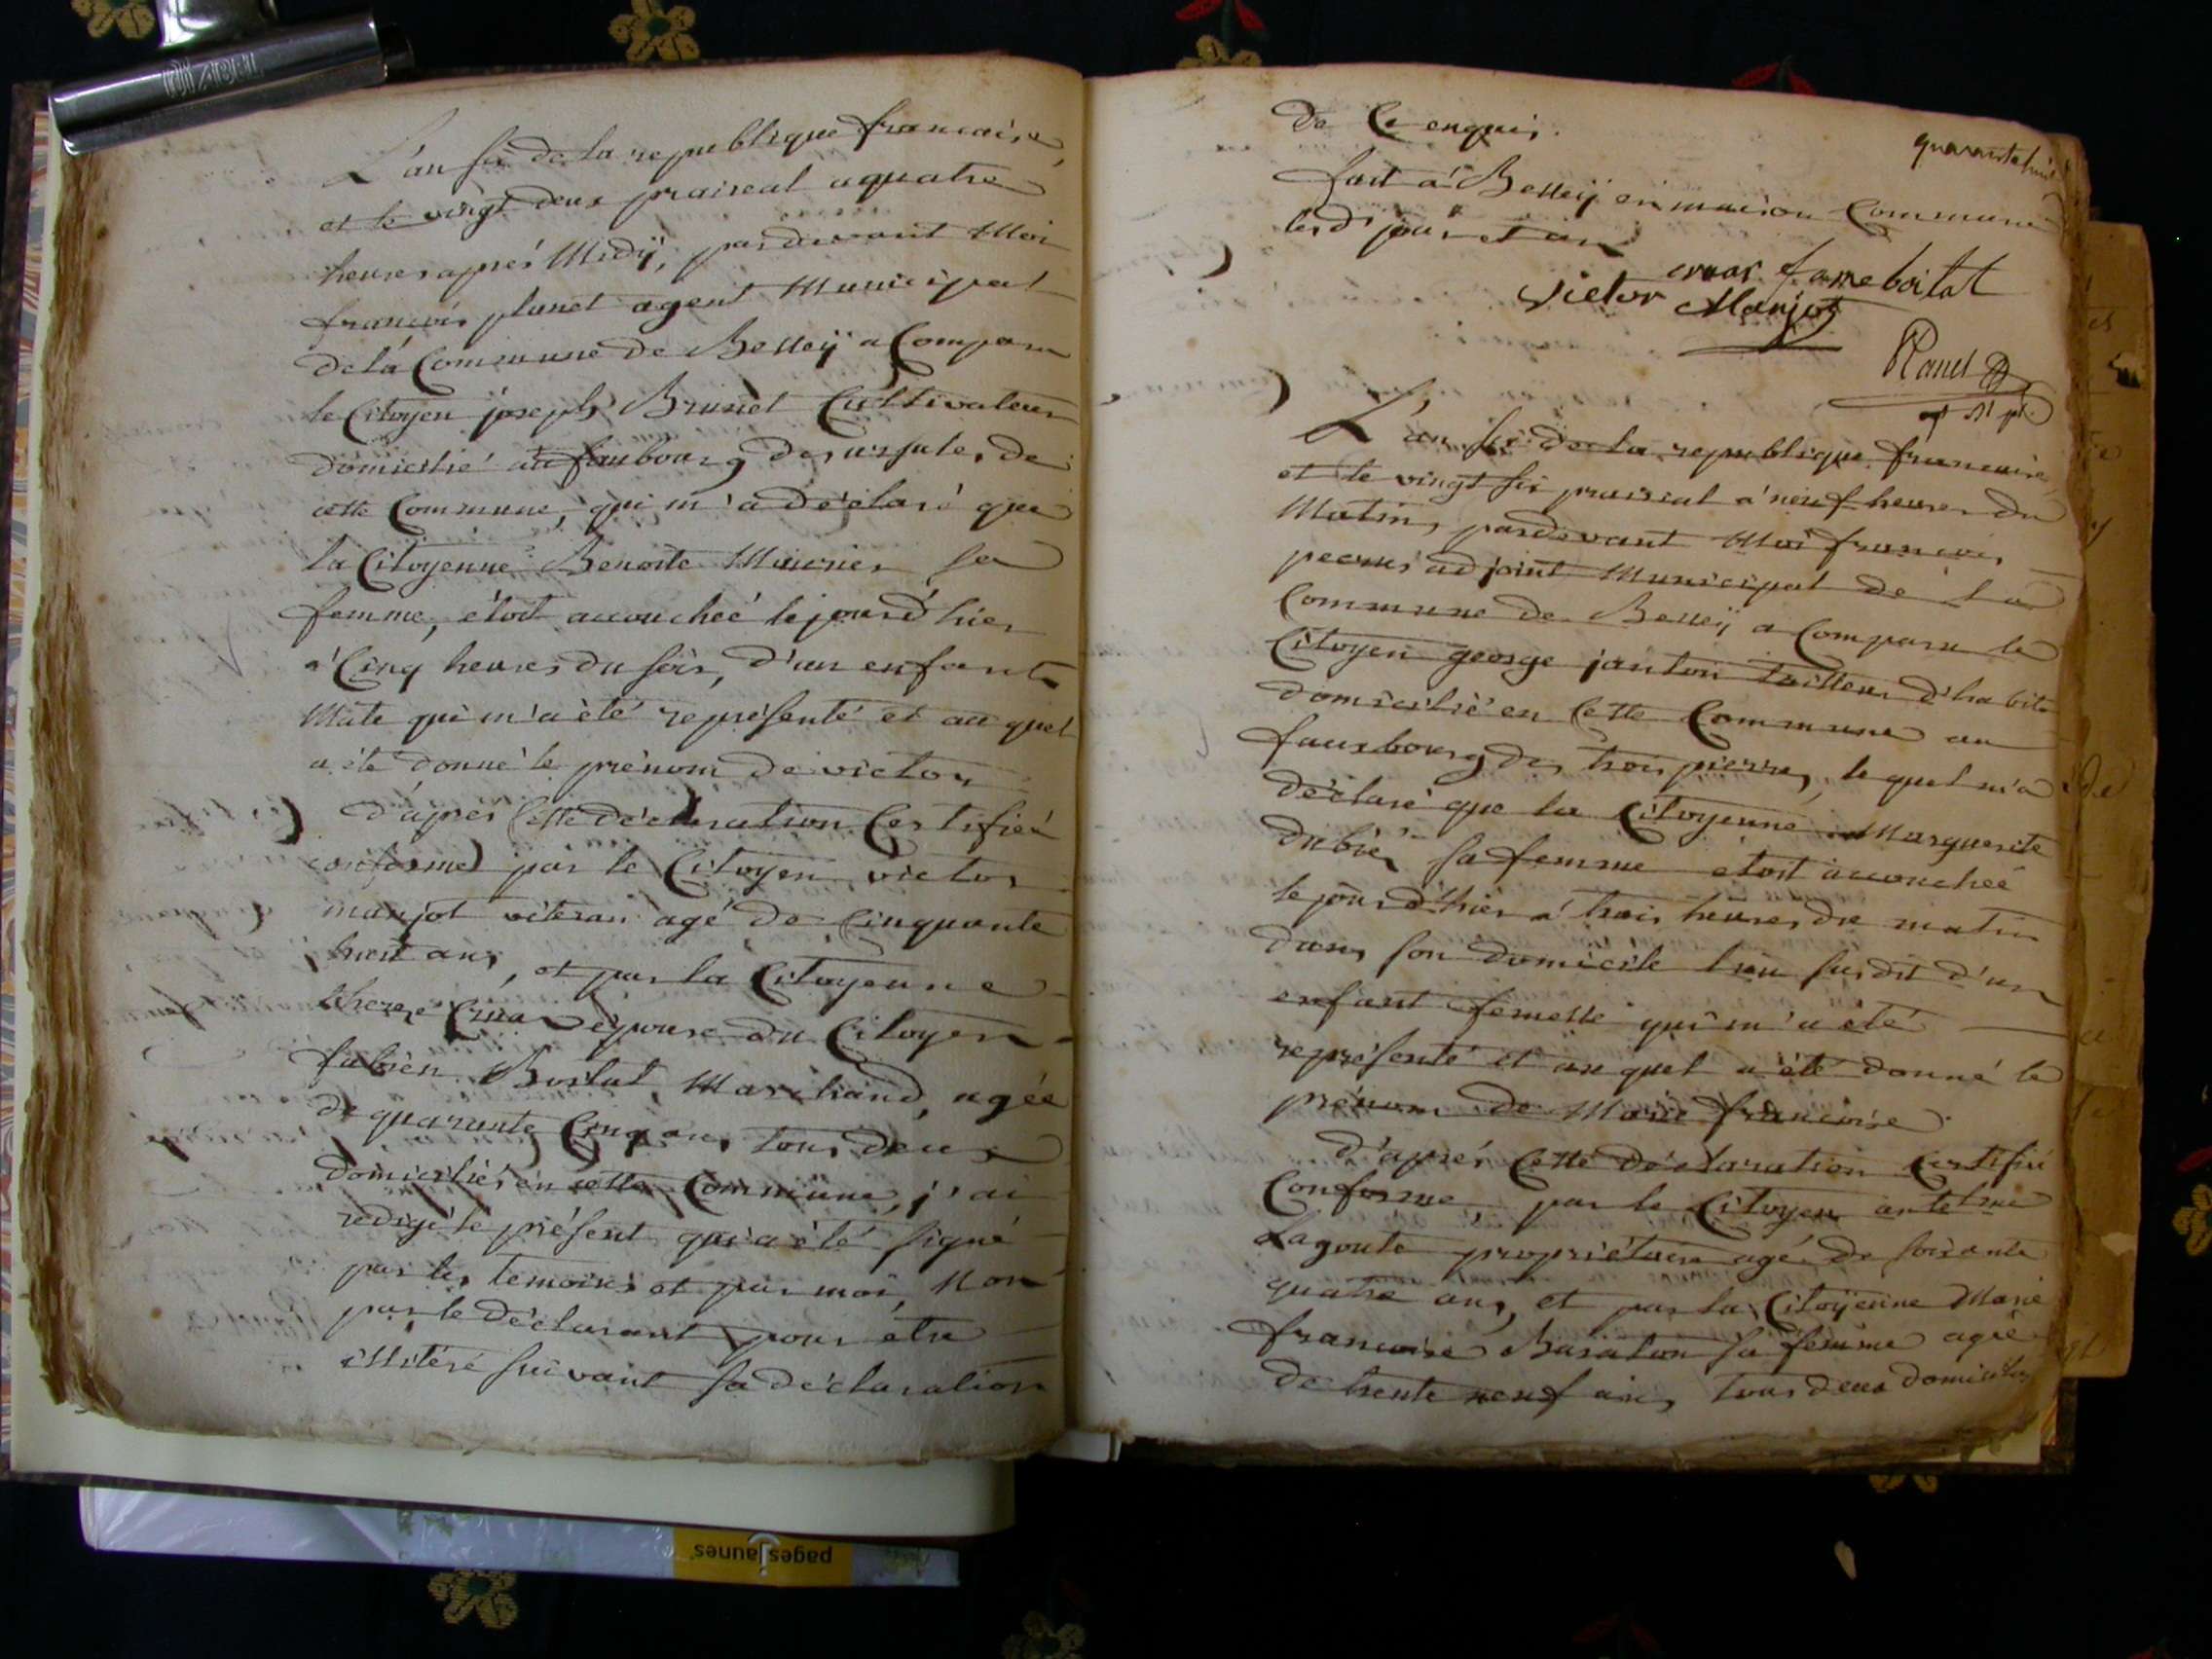 L'an six de la republique francaise,
et le vingt deux prairial a quatre
heures aprés Midÿ, pardevant Moi
francois planet agent Municipal
de la Commune de Belleÿ a Comparu
le Citoyen joseph Brunet Cultivateur
domicilié au faubourg des ursules de
cette Commune, qui m'a déclaré que
la Citoyenne Benoite Maurier sa
femme, étoit accouchée le jour d'hier
à Cinq heures du soir, d'un enfant
Mâle qui m'a été représenté et au quel
a été donné le prénom de victor
d'aprés Cette déclaration Certifiée
conforme par le Citoyen victor
manjot véteran agé de Cinquante
huit ans, et par la Citoyenne
therese épouse du Citoyen
fabien Boitat, Marchand, agée
de quarante Cinq ans, tous deux
domiciliés en cette Commune, j'ai
redigé le présent qui a été signé
par les temoins et par moi, Non
par le déclarant pour être
illitéré suivant sa déclaration
de Ce enquis.
quarante huit
fait à Belleÿ en maison Commune
lesd. jour et an
fame boitat
victor Manjot
Planet
L'an six de la republique francaise,
et le vingt six prairial à neuf heures du
Matin, pardevant Moi francois
adjoint Municipal de la
Commune de Belleÿ a Comparu le
Citoyen george janton tailleur d'habits
domicilié en Cette Commune au
fauxbourg des trois pierres, le quel m'a
déclaré que la Citoyenne Marguerite
sa femme étoit accouchée
le jour d'hier à trois heures du matin
dans son domicile lieu susdit d'un
enfant femelle qui m'a été
représenté et au quel a été donné le
prénom de Marie francoise
d'aprés Cette déclaration Certifié
Conforme par le Citoyen antelme
Lagoute propriétaire agé de soixante
quatre ans, et par la Citoÿenne Marie
francoise sa femme agée
de trente neuf ans, tous deux domiciliés
pagesjaunes